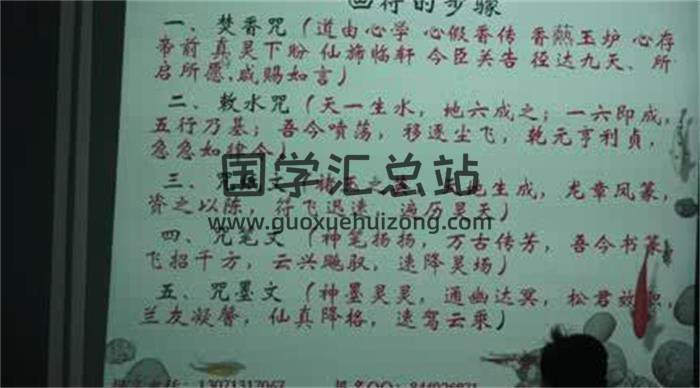 画符的步骤
一、焚香咒（道由心学 心假香传 香爇玉炉 心存
帝前 真灵下盼 仙旆临轩 今臣关告 径达九天、所
启所愿、咸赐如言）
二、敕水咒（天一生水，地六成之；一六即成，
五行乃基；吾今喷荡，移逐尘飞，乾元亨利贞，
急急如律令）
国学汇总站
三、咒 文 之 地生成，龙章凤篆，
资之以陈，符飞迅速，遍历昊天）
www.guoxuehuizong.com
四、咒笔文（神笔扬扬，万古传芳，吾今书篆，
飞招千方，云兴飚驭，速降灵场）
五、咒墨文（神墨灵灵，通幽达冥，松君效
兰友凝馨，仙真降格，速驾云乘）
13071317067 QQ：